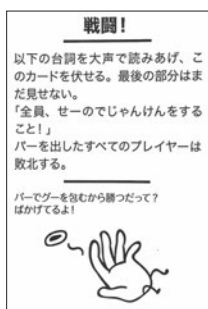 戦闘!
以下の台詞を大声で読みあげ、こ
のカードを伏せる。最後の部分はま
だ見せない。
「全員、せーのでじゃんけんをする
こと!」
パーを出したすべてのプレイヤーは
敗北する。
パーでグーを包むから勝つだって?
ばかげてるよ!